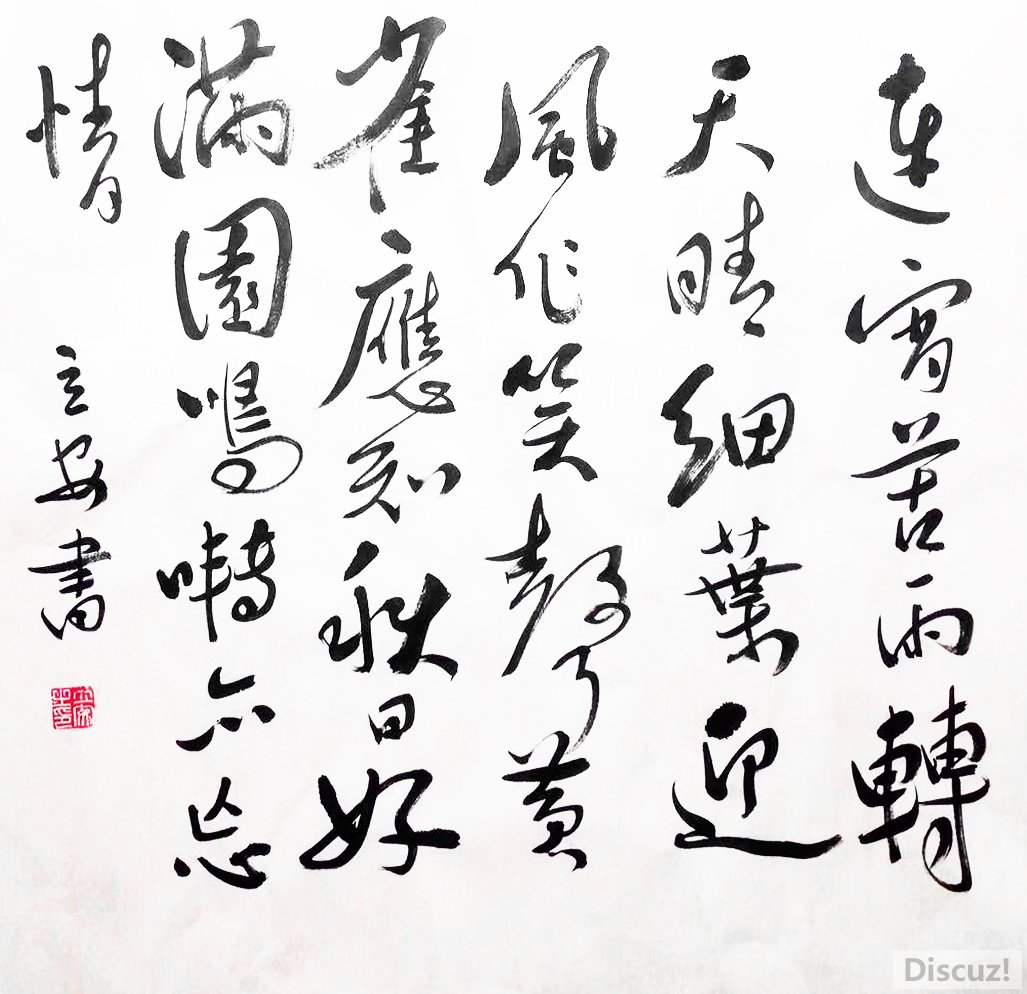 連宵苦雨轉
天晴細葉迎
風作笑聲黄
雀應知秋日好
滿園鳴囀亦忘
情
立安書
Discuz!